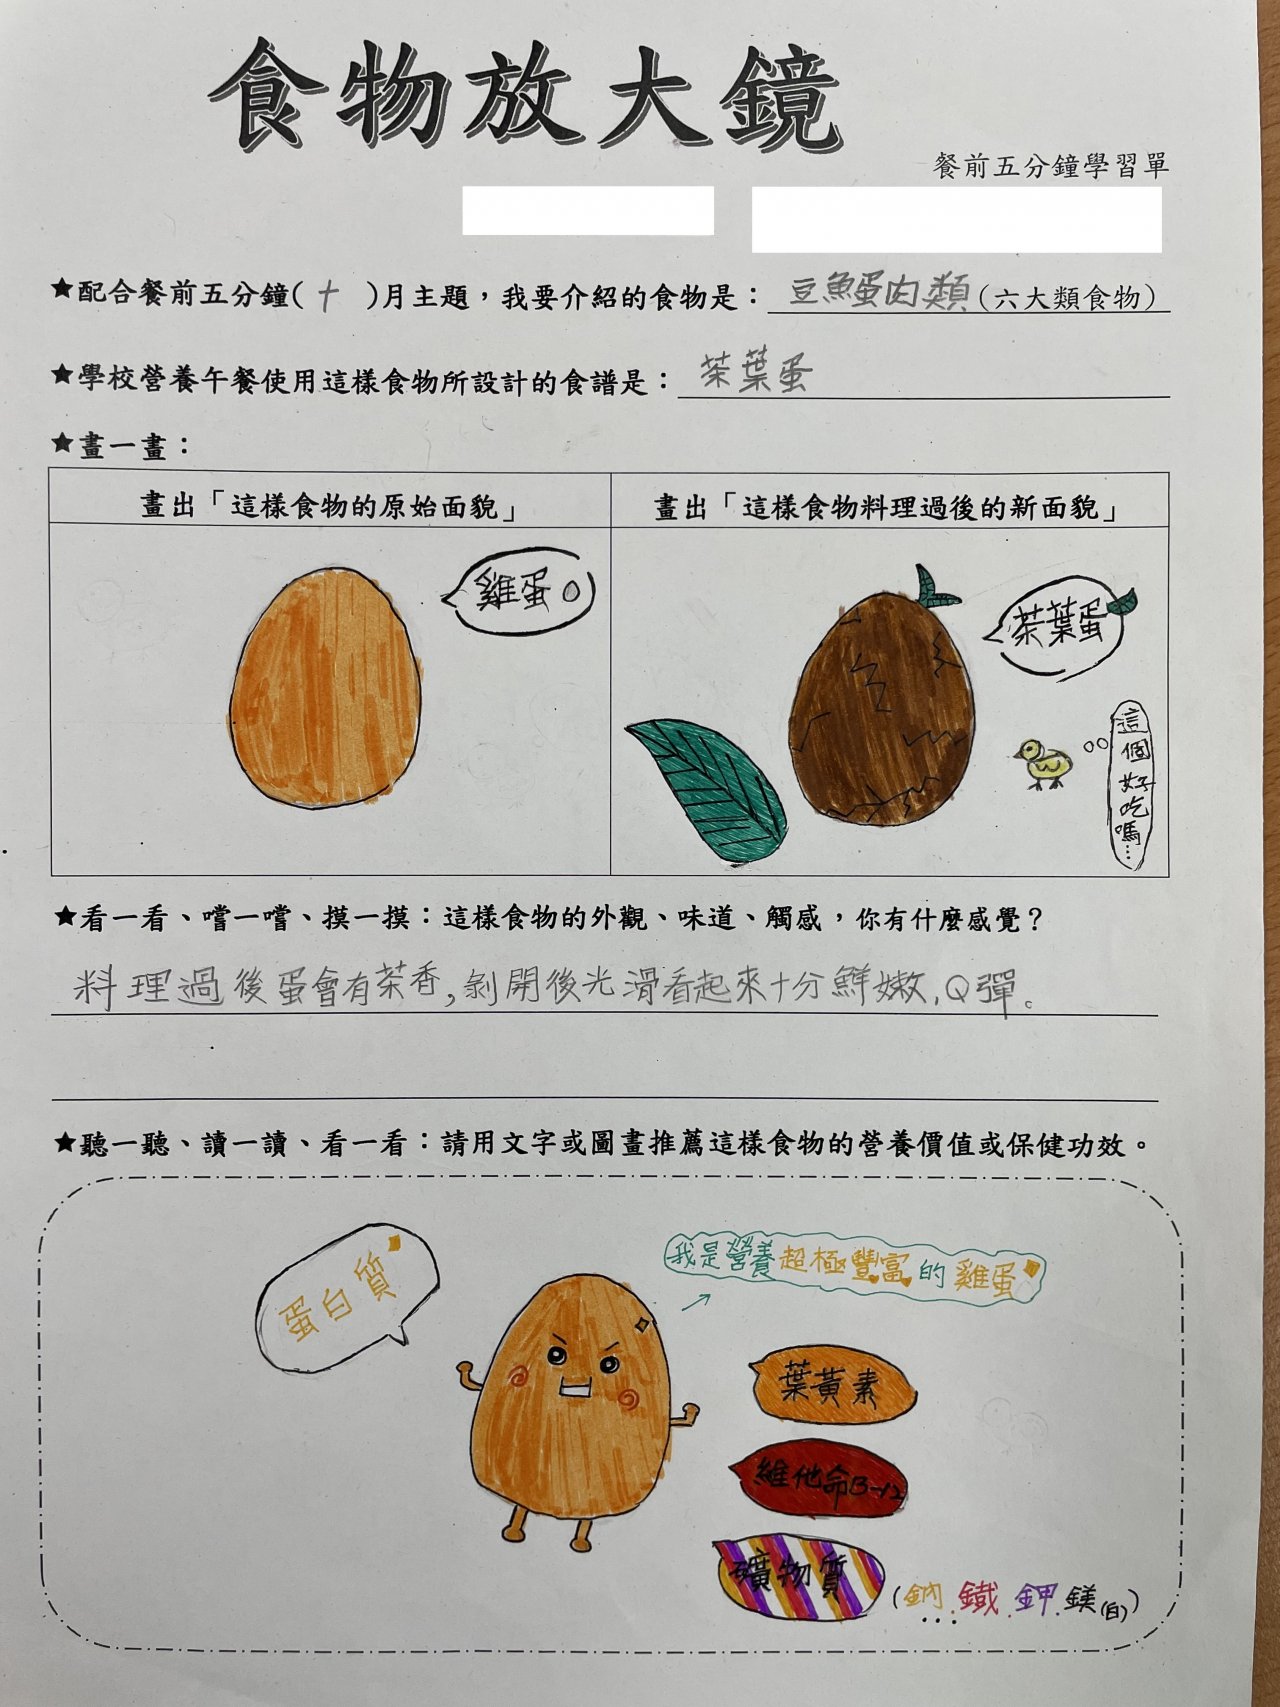 食物放大鏡
餐前五分鐘學習單
★配合餐前五分鐘(十)月主題，我要介紹的食物是：豆魚蛋肉類(六大類食物)
★學校營養午餐使用這樣食物所設計的食譜是：茶葉蛋
★畫一畫：
畫出「這樣食物的原始面貌」
畫出「這樣食物料理過後的新面貌」
雞蛋
茶葉蛋
這個好吃嗎…
★看一看、嚐一嚐、摸一摸：這樣食物的外觀、味道、觸感，你有什麼感覺？
料理過後蛋會有茶香,剝開後光滑看起來十分鮮嫩,Q彈。
★聽一聽、讀一讀、看一看：請用文字或圖畫推薦這樣食物的營養價值或保健功效。
蛋白質
我是營養超極豐富的雞蛋
葉黃素
維他命B-12
礦物質
(鈉.鐵.鉀.鎂(白))